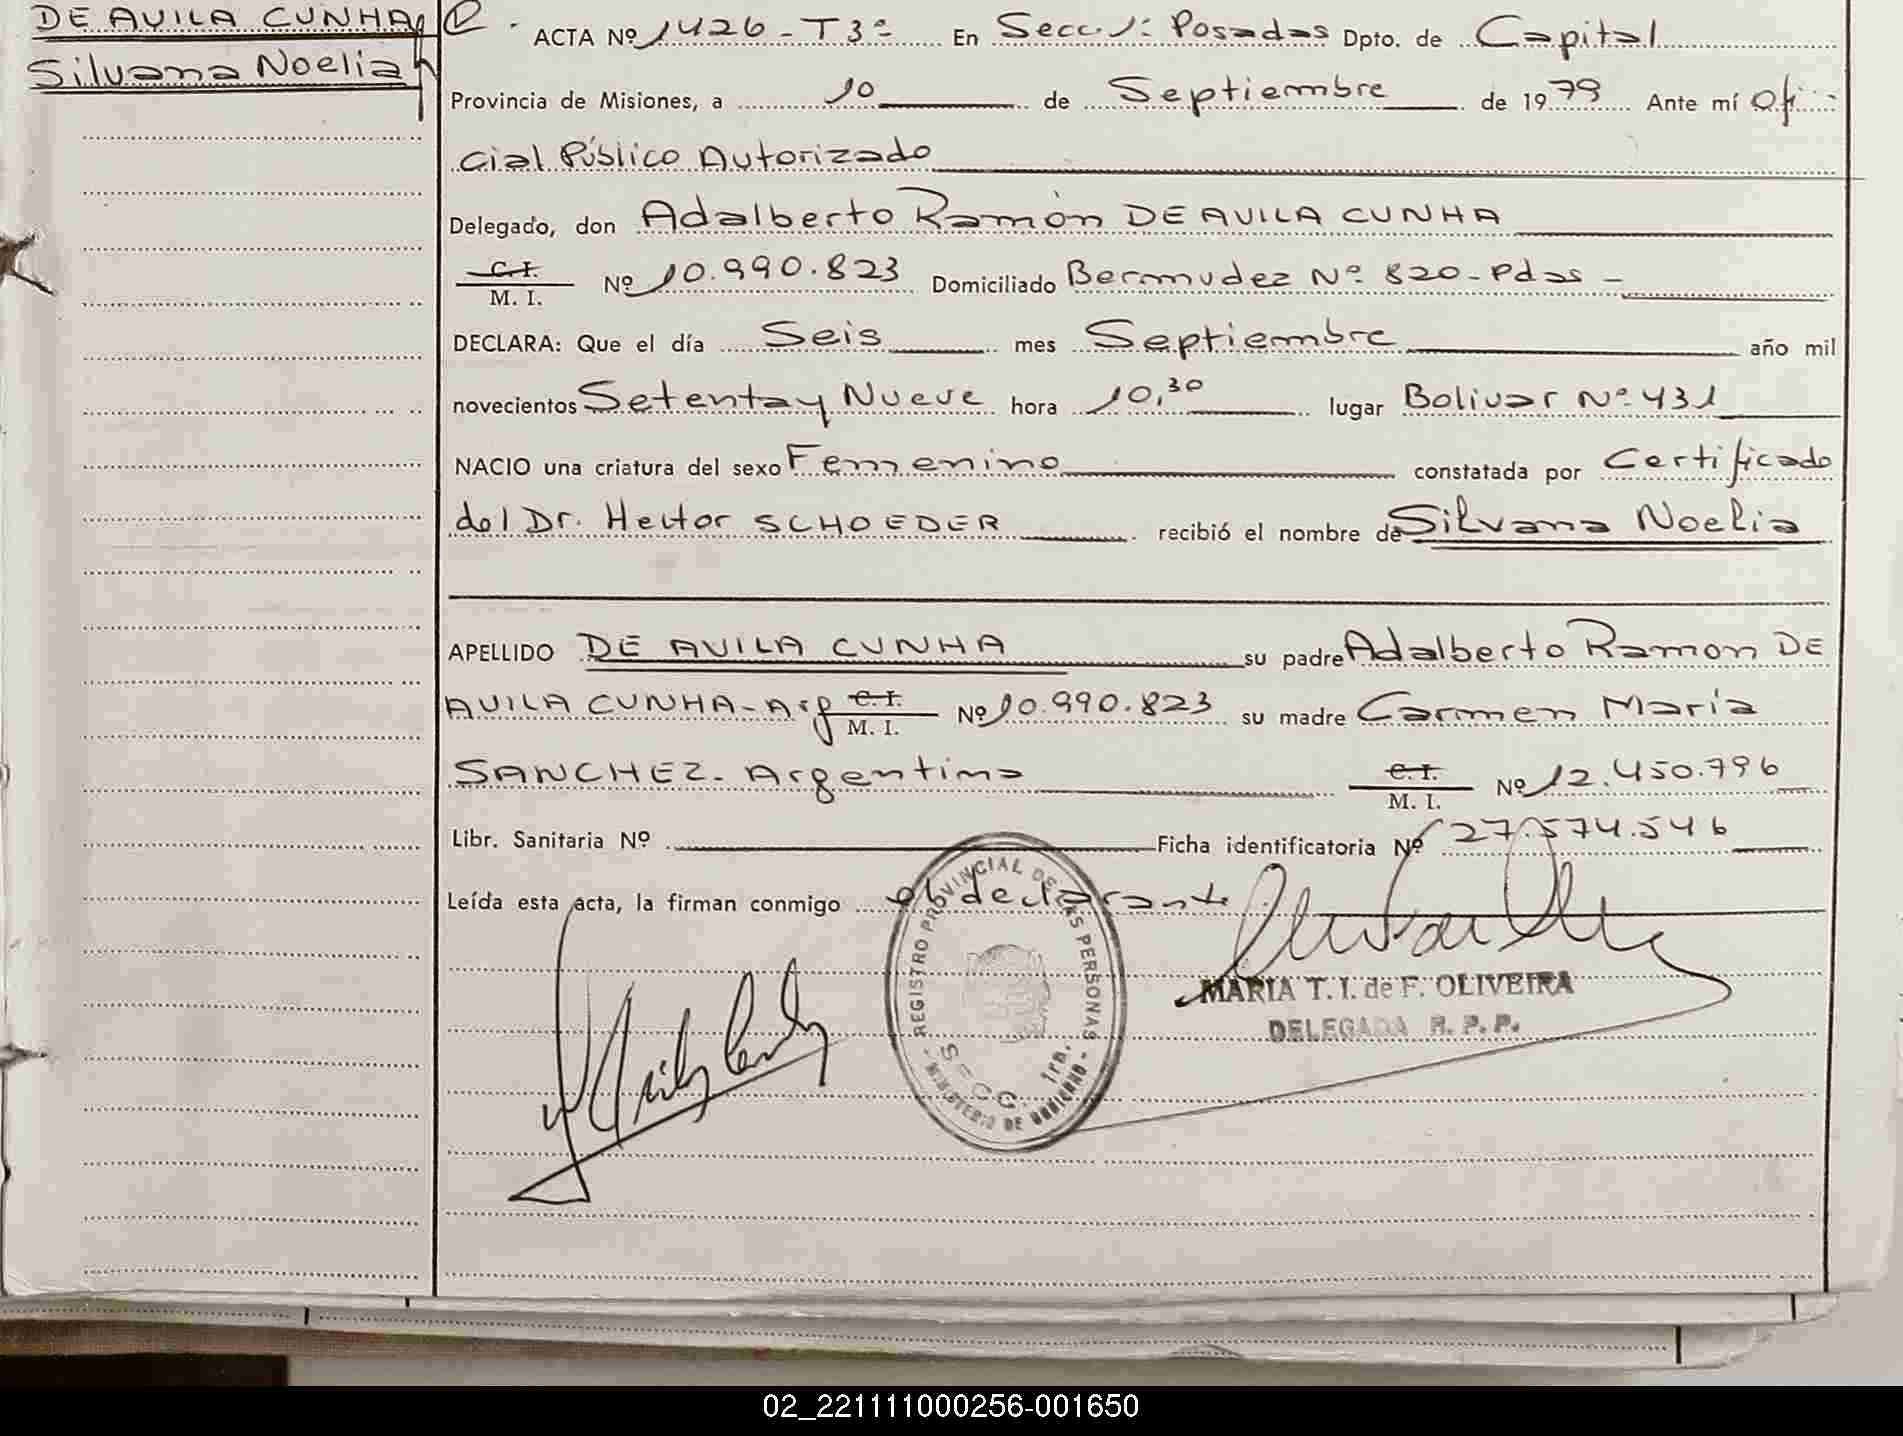 DE AVILA CUNHA
Silvana Noelia
ACTA Nº 1426-T3º En Secc. 1º Posadas Dpto. de Capital
Provincia de Misiones, a 10 de Septiembre de 1979 Ante mí Ofi-
cial Público Autorizado
Delegado, don Adalberto Ramón DE AVILA CUNHA
C.I.
M. I. Nº 10.990.823 Domiciliado Bermudez Nº 820-Pdas-
DECLARA: Que el día Seis mes Septiembre año mil
novecientos Setenta y Nueve hora 10,30 lugar Bolivar Nº 431
NACIO una criatura del sexo Femenino constatada por Certificado
del Dr. Hector SCHOEDER recibió el nombre de Silvana Noelia
APELLIDO DE AVILA CUNHA su padre Adalberto Ramon DE
AVILA CUNHA-Arg C.I.
M. I. Nº 10.990.823 su madre Carmen Maria
SANCHEZ- Argentina C.I.
M. I. Nº 12.450.796
Libr. Sanitaria Nº Ficha identificatoria Nº 27.574.546
Leída esta acta, la firman conmigo el declarante
REGISTRO PROVINCIAL DE LAS PERSONAS
Secc. 1ra.
- MINISTERIO DE GOBIERNO -
MARIA T. I. de F. OLIVEIRA
DELEGADA R. P. P.
02_221111000256-001650